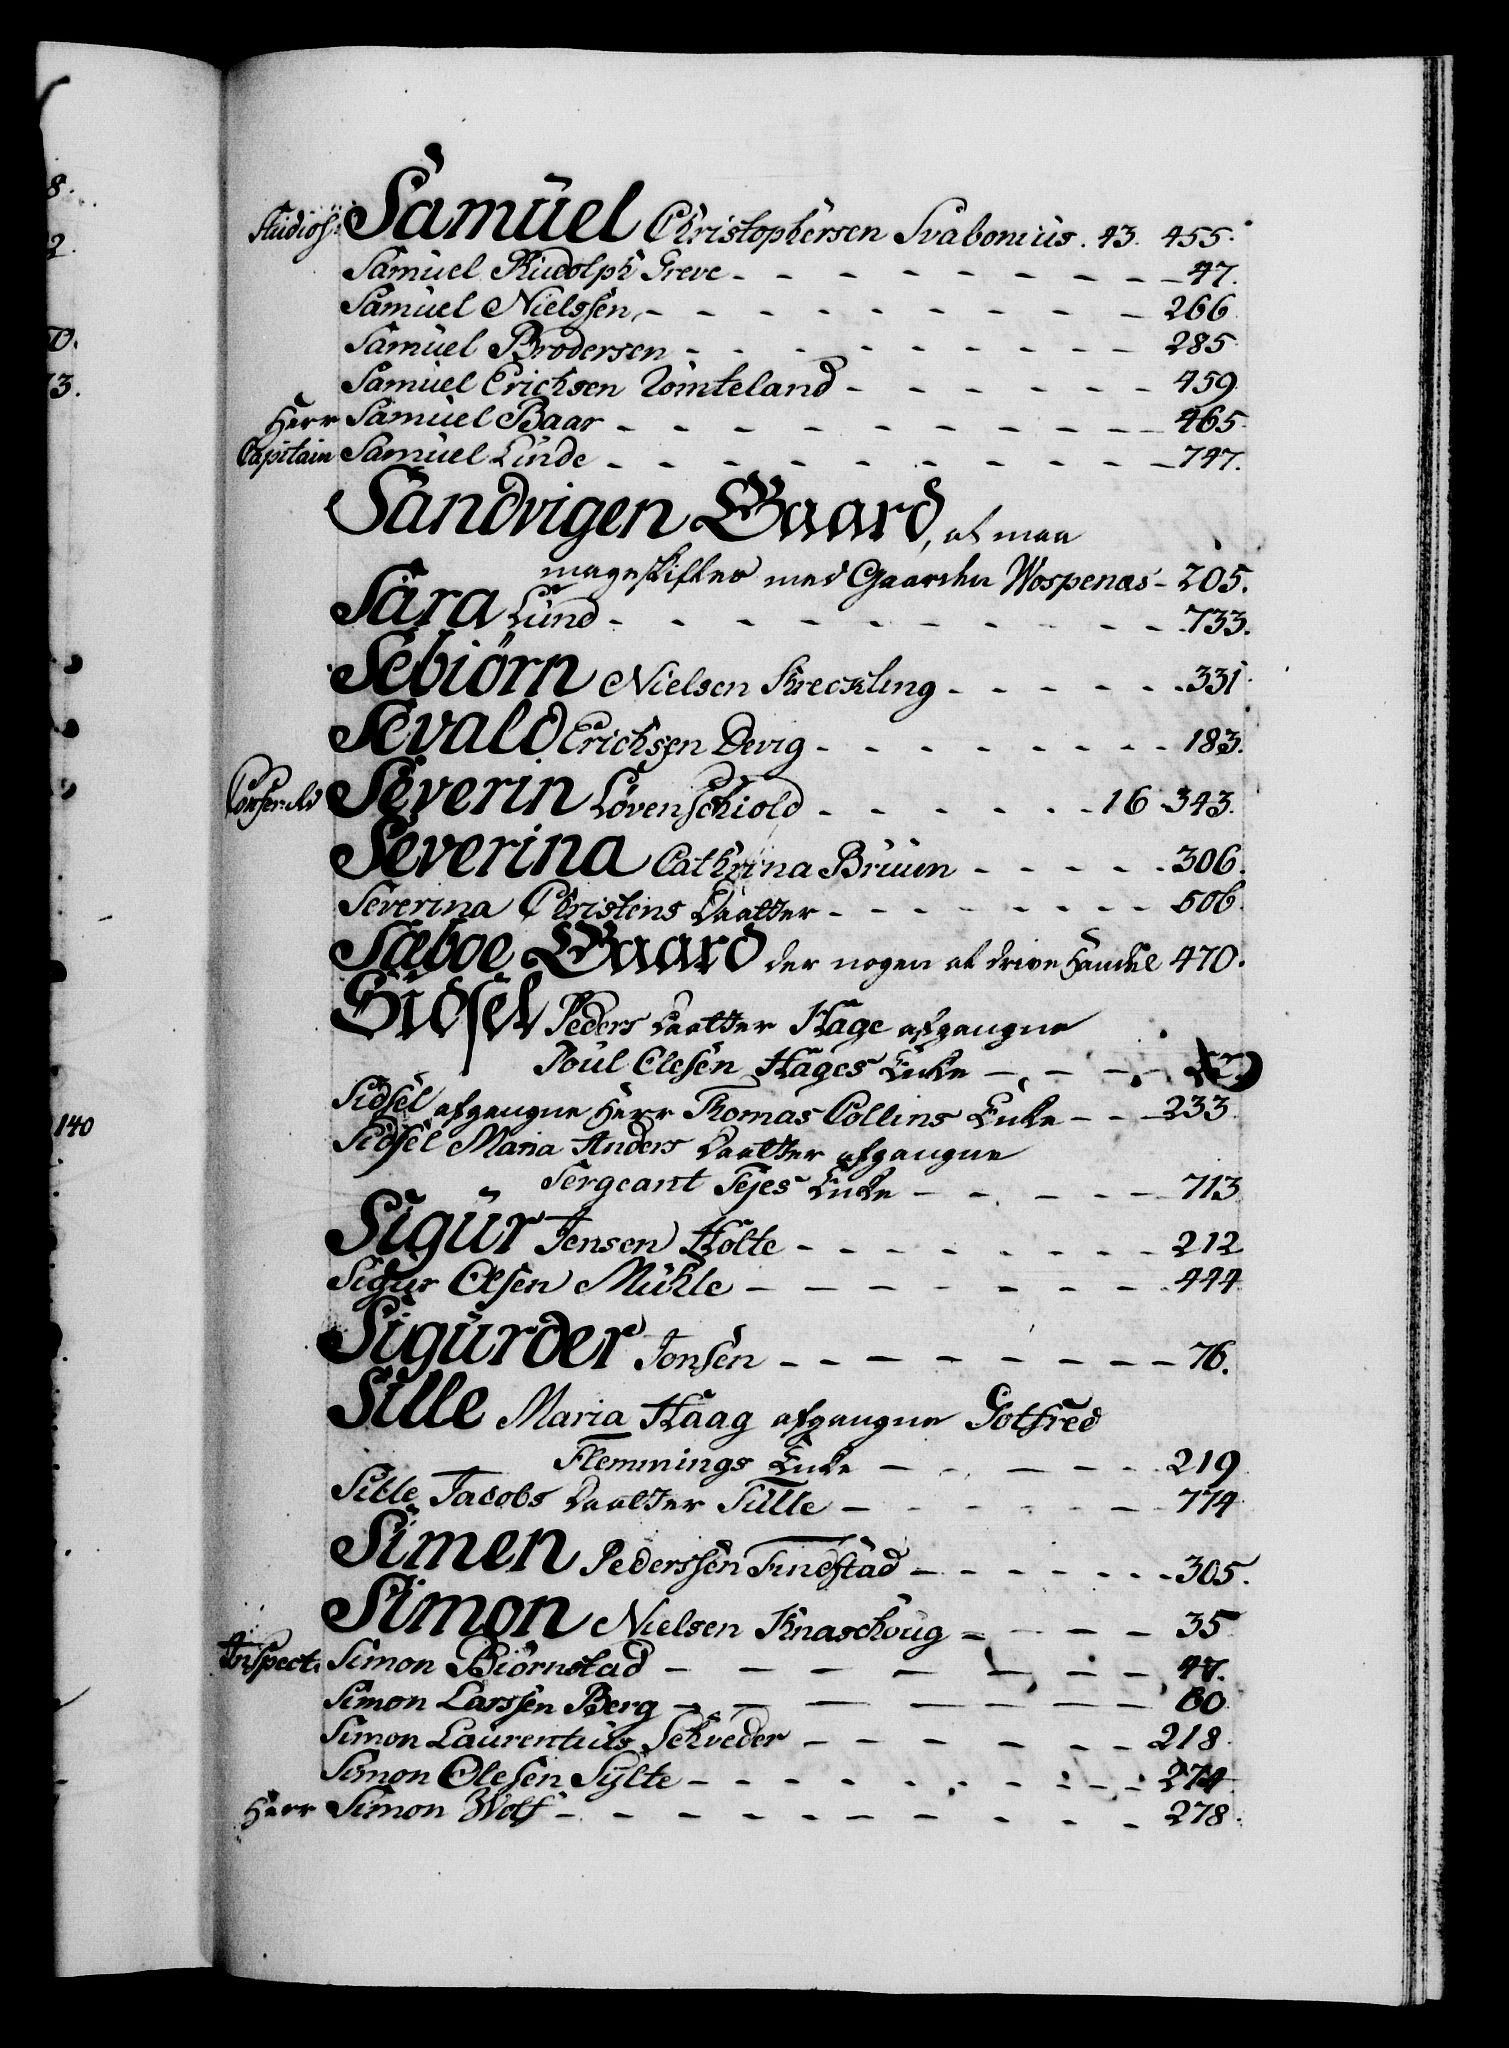 Studios: Samuel Christophersen Svabonius. 43. 455.
Samuel Rudolph Greve - - - 47.
Samuel Nielssen - - - 266
Samuel Brodersen - - - 285
Samuel Erichsen Tomteland - - - 459.
Herr Samuel Baar - - - 465
Capitain Samuel Linde - - - 747.
Sandvigen Gaard, at maa
mageskiftes med Gaarden Wospenæs - 205.
Sara Lund - - - 733.
Sebiörn Nielsen Kreckling - - - 331
Sevald Erichsen Devig - - - 183.
Severin Lövenschiold - - - 16 343.
Severina Cathrina Bruun - - - 306.
Severina Christens Daatter - - - 606.
Sæboe Gaard der nogen at drive Handel 470.
Sidsel Peders Daatter Hage afgangne
Poul Olesen Hages Enke - - -
Sidsel afgangne Herr Thomas Collins Enke - - 233.
Sidsel Maria Anders Daatter afgangne
Sergeant Tejes Enke - - - 713
Sigur Jensen Holte - - - 212
Sigur Olsen Mühle - - - 444
Sigurder Jonsen - - - 76.
Sille Maria Haag afgangne Gotfred
Flemmings Enke - - - 219
Sille Jacobs Daatter Sille - - - 774
Simen Pederssen Findstad - - - 305.
Simon Nielsen Knaschoug - - - 35
Inspect: Simon Biörnstad - - - 47.
Simon Larssen Berg - - - 60
Simon Laurentius Schveder - - - 218.
Simon Olesen Sylte - - - 274
Herr Simon Wolf - - - 278.
8.
2.
0.
73.
140